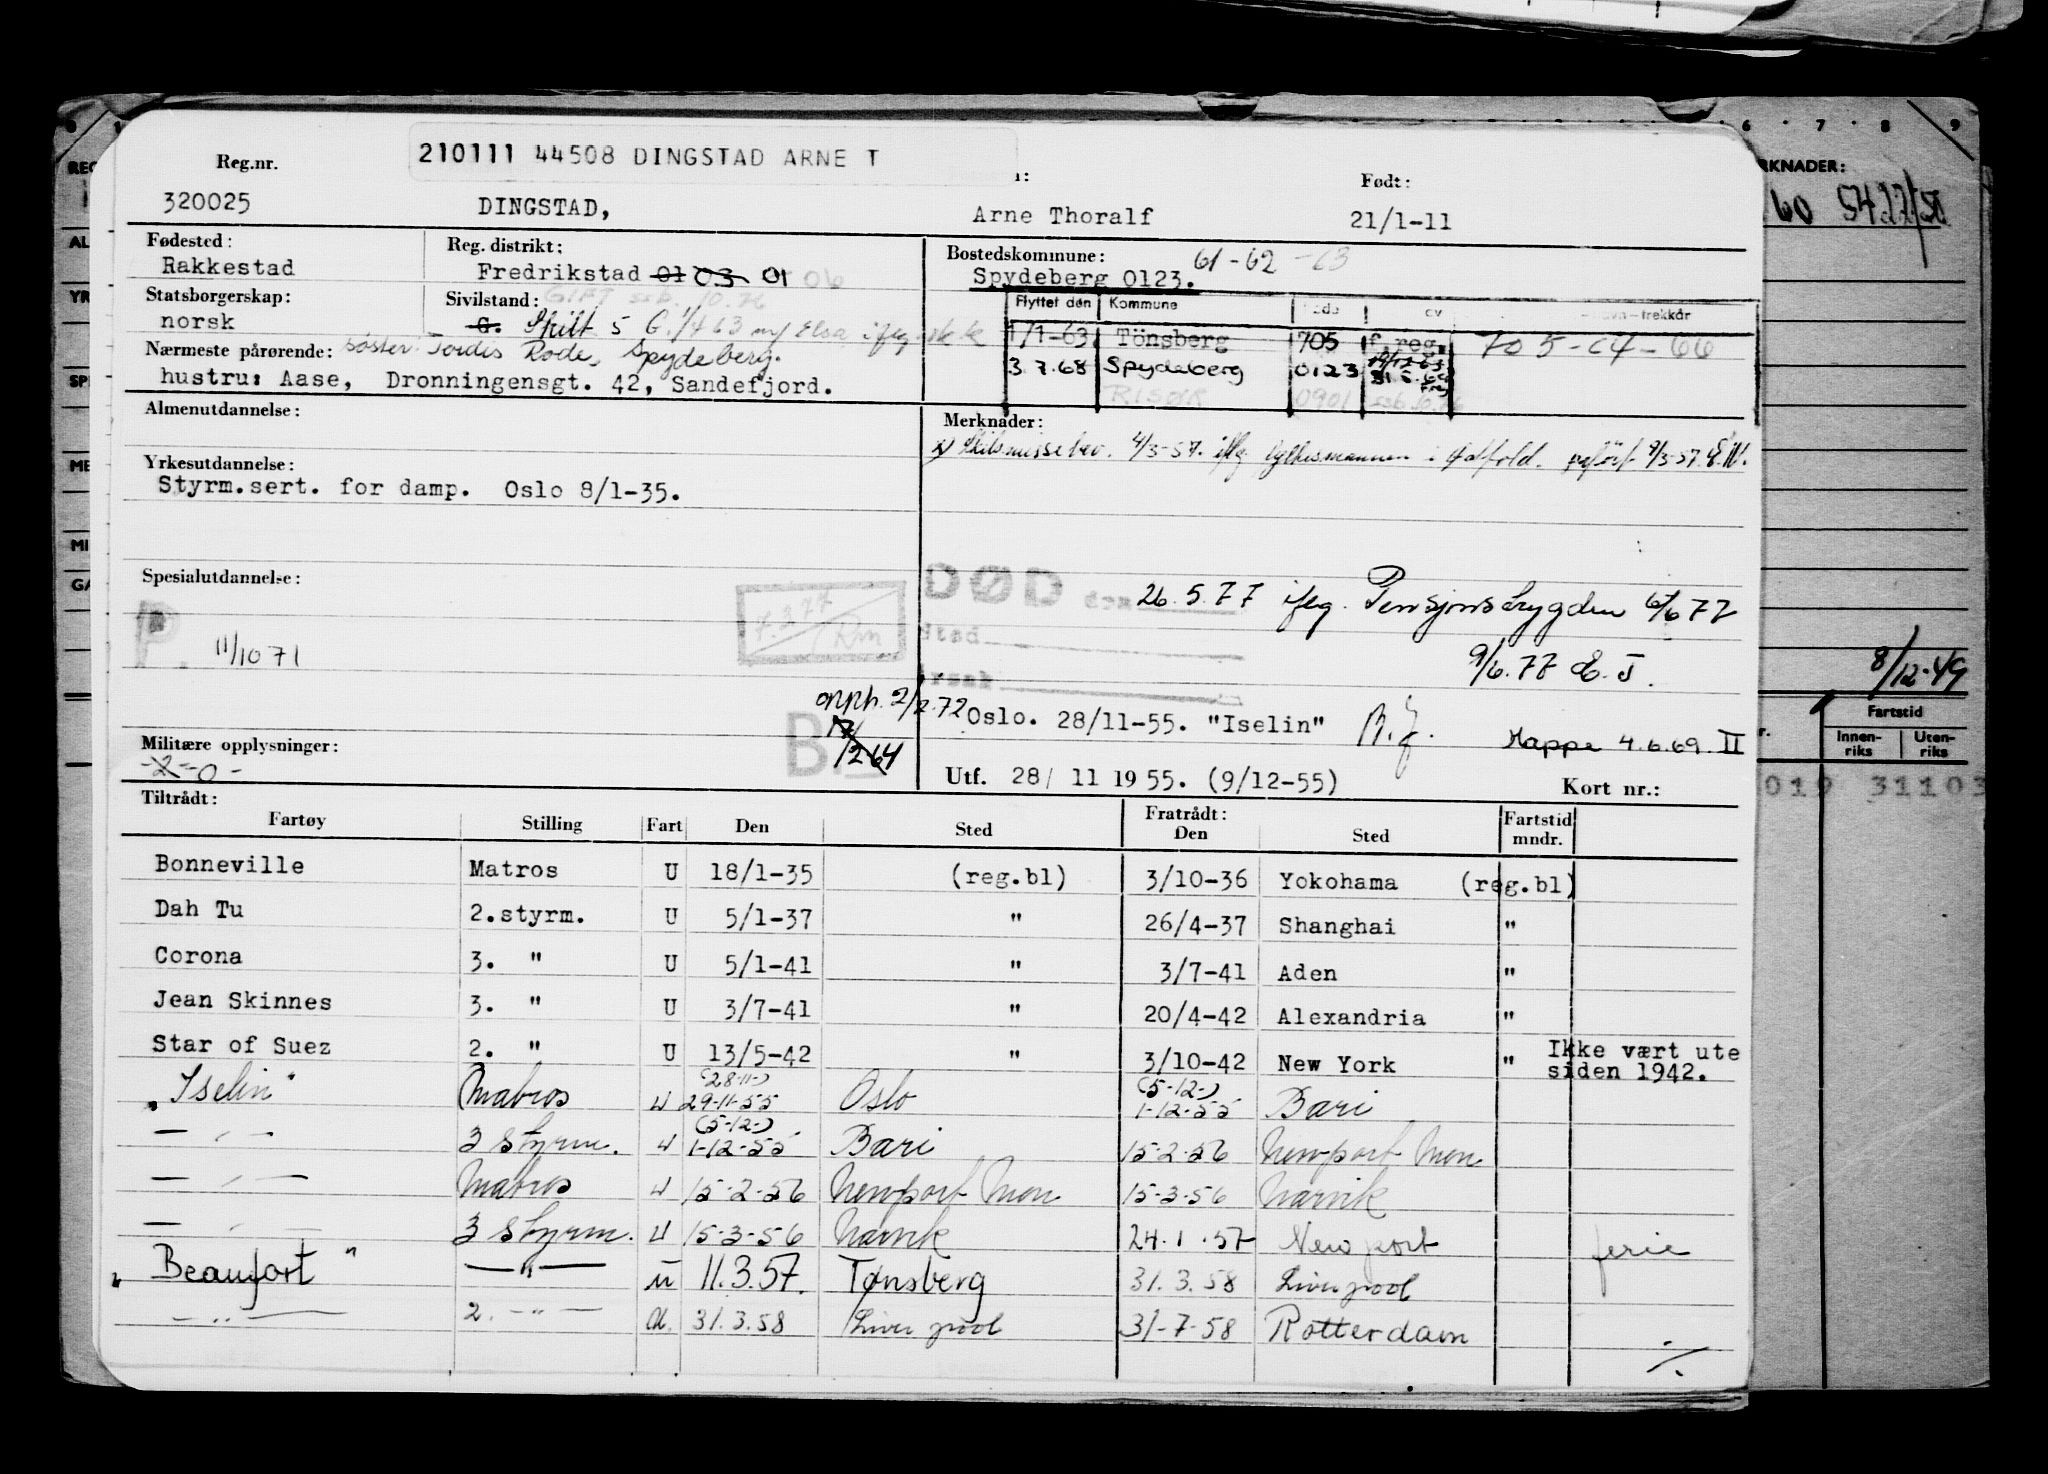 210111 44508 DINGSTAD ARNE T
Reg.nr. Født:
320025 DINGSTAD, Arne Thoralf 21/1-11
Fødested: Reg. distrikt: Bostedskommune: 61-62-63
Rakkestad Fredrikstad 01 03 01 06 Spydeberg 0123.
Statsborgerskap: Sivilstand: Flyttet den Kommune
norsk G. Skilt S G. 1/4 63 m/ Elsa 1/1-63 Tönsberg 705 f.reg. 705-64-66
Nærmeste pårørende: søster: Tordis Rode, Spydeberg. 3.7.68 Spydeberg 0123
hustru: Aase, Dronningensgt. 42, Sandefjord. RISØR 0901
Almenutdannelse: Merknader:
x) Skilsmissebev. 4/3-57. iflg. fylkesmannen i Østfold. påført 9/3-57. E.W.
Yrkesutdannelse:
Styrm.sert. for damp. Oslo 8/1-35.
Spesialutdannelse: DØD den 26.5.77 iflg. Pensjonstrygden 6/6 77
P. 11/10 71 Sted
9/6.77 E.J.
Årsak
opph. 2/2.72 Oslo. 28/11-55. "Iselin"
B. Mappe 4.6.69. II
Militære opplysninger:
-2-0- Utf. 28/ 11 1955. (9/12-55) Kort nr.:
Tiltrådt: Fratrådt: Fartstid
Fartøy Stilling Fart Den Sted Den Sted mndr.
Bonneville Matros U 18/1-35 (reg.bl) 3/10-36 Yokohama (reg.bl)
Dah Tu 2.styrm. U 5/1-37 " 26/4-37 Shanghai "
Corona 3. " U 5/1-41 " 3/7-41 Aden "
Jean Skinnes 3. " U 3/7-41 " 20/4-42 Alexandria "
Star of Suez 2. " U 13/5-42 " 3/10-42 New York " Ikke vært ute
siden 1942.
(28-11-) (5-12-)
"Iselin" Matros U 29-11-55 Oslo 1-12-55 Bari
(5-12-)
— " — 3 styrm. U 1-12-55 Bari 15-2-56 Newport Mon
— " — Matros U 15-2-56 Newport Mon 15-3-56 Narvik
— " — 3 styrm. U 15-3-56 Narvik 24.1.57 Newport ferie
"Beaufort" — " — U 11.3.57. Tønsberg 31.3.58 Liverpool
— " — 2. — " — U. 31.3.58 Liverpool 31-7-58 Rotterdam
./.
RKNADER:
60 5427/50
8/12-49
Fartstid
Innen-riks Uten-riks
019 31103